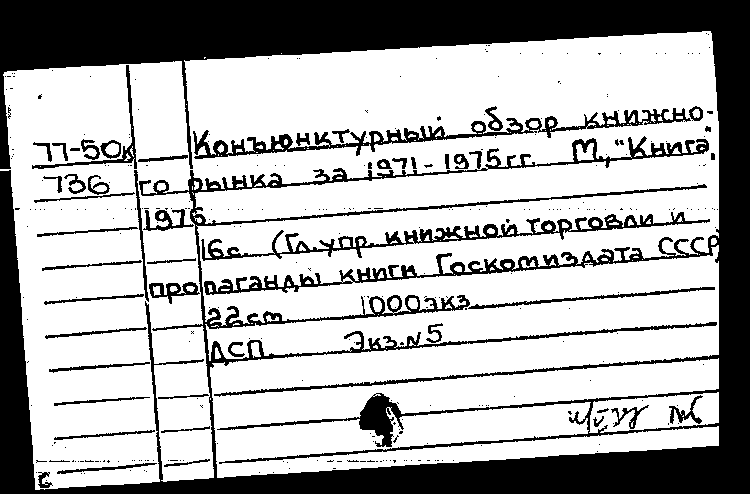 77-50к Конъюнктурный обзор книжно-
736 го рынка за 1971-1975гг. М., "Книга",
1976.
16с. (Гл.упр. книжной торговли и
пропаганды книги Госкомиздата СССР)
22см 1000экз.
ДСП. Экз.N5